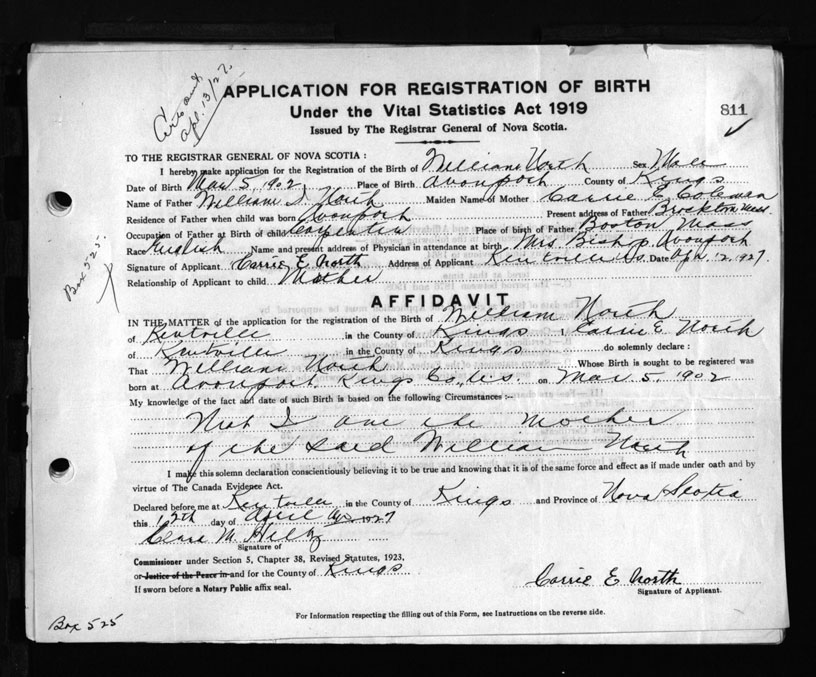 Apl. 13/27.
APPLICATION FOR REGISTRATION OF BIRTH
Under the Vital Statistics Act 1919
811
Issued by The Registrar General of Nova Scotia.
TO THE REGISTRAR GENERAL OF NOVA SCOTIA :
I hereby make application for the Registration of the Birth of William North Sex Male
Date of Birth Mar 5, 1902 Place of Birth Avonport County of Kings
Name of Father William North Maiden Name of Mother Carrie E Coleman
Residence of Father when child was born Avonport Present address of Father Brockton Mass.
Occupation of Father at Birth of child Carpenter Place of birth of Father Boston Mass
Race English Name and present address of Physician in attendance at birth Mrs. Bishop Avonport
Signature of Applicant Carrie E. North Address of Applicant Kentville N.S. Date Apl. 12, 1927.
Relationship of Applicant to child Mother
Box 525.
AFFIDAVIT
IN THE MATTER of the application for the registration of the Birth of William North
of Kentville in the County of Kings Carrie E. North
of Kentville in the County of Kings do solemnly declare :
That William North Whose Birth is sought to be registered was
born at Avonport Kings Co., N.S. on Mar 5, 1902
My knowledge of the fact and date of such Birth is based on the following Circumstances :-
That I am the mother
of the said William North
I make this solemn declaration conscientiously believing it to be true and knowing that it is of the same force and effect as if made under oath and by
virtue of The Canada Evidence Act.
Declared before me at Kentville in the County of Kings and Province of Nova Scotia
this 12th day of April 1927
Clara M. Hiltz
Signature of
Commissioner under Section 5, Chapter 38, Revised Statutes, 1923,
or Justice of the Peace in and for the County of Kings
If sworn before a Notary Public affix seal.
Carrie E North
Signature of Applicant.
For Information respecting the filling out of this Form, see Instructions on the reverse side.
Box 525